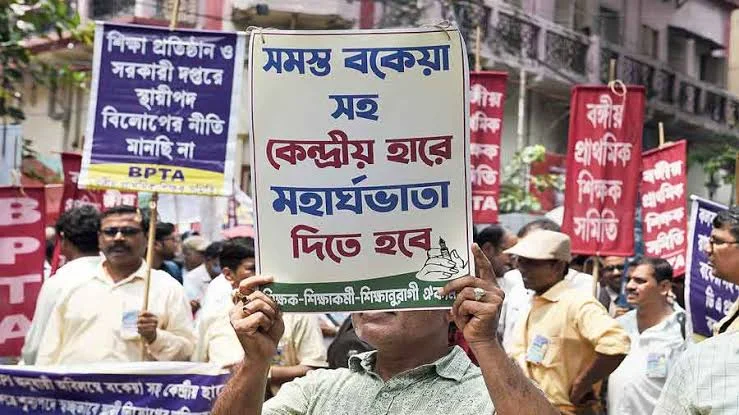 শিক্ষা প্রতিষ্ঠান ও
সরকারী দপ্তরে
স্থায়ীপদ
বিলোপের নীতি
মানছি না
BPTA
সমস্ত বকেয়া
সহ
কেন্দ্রীয় হারে
মহার্ঘভাতা
দিতে হবে
শিক্ষক-শিক্ষাকর্মী-শিক্ষানুরাগী
বঙ্গীয়
প্রাথমিক
শিক্ষক
সমিতি
বঙ্গীয়
প্রাথমিক
শিক্ষক
সমিতি
বঙ্গীয়
প্রাথমিক
শিক্ষক
সমিতি
BPTA
BPTA
বকেয়া সহ কেন্দ্রীয়